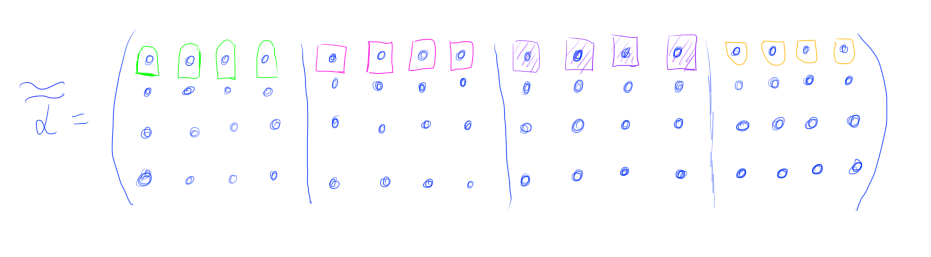 α̃̃ =